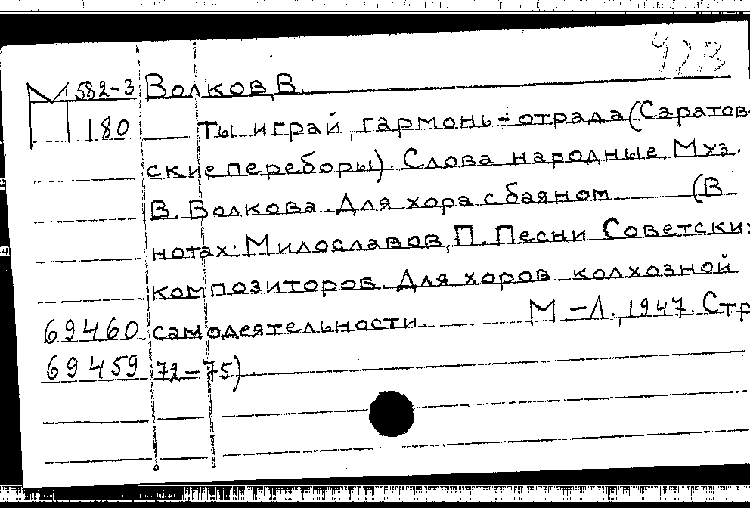 923
М 582-3 Волков, В.
180 Ты играй, гармонь-отрада (Саратов-
ские переборы). Слова народные Муз.
В. Волкова. Для хора с баяном. (В
нотах: Милославов, П. Песни Советски
композиторов. Для хоров колхозной
69460 самодеятельности. М-Л., 1947. Стр
69459 72-75)